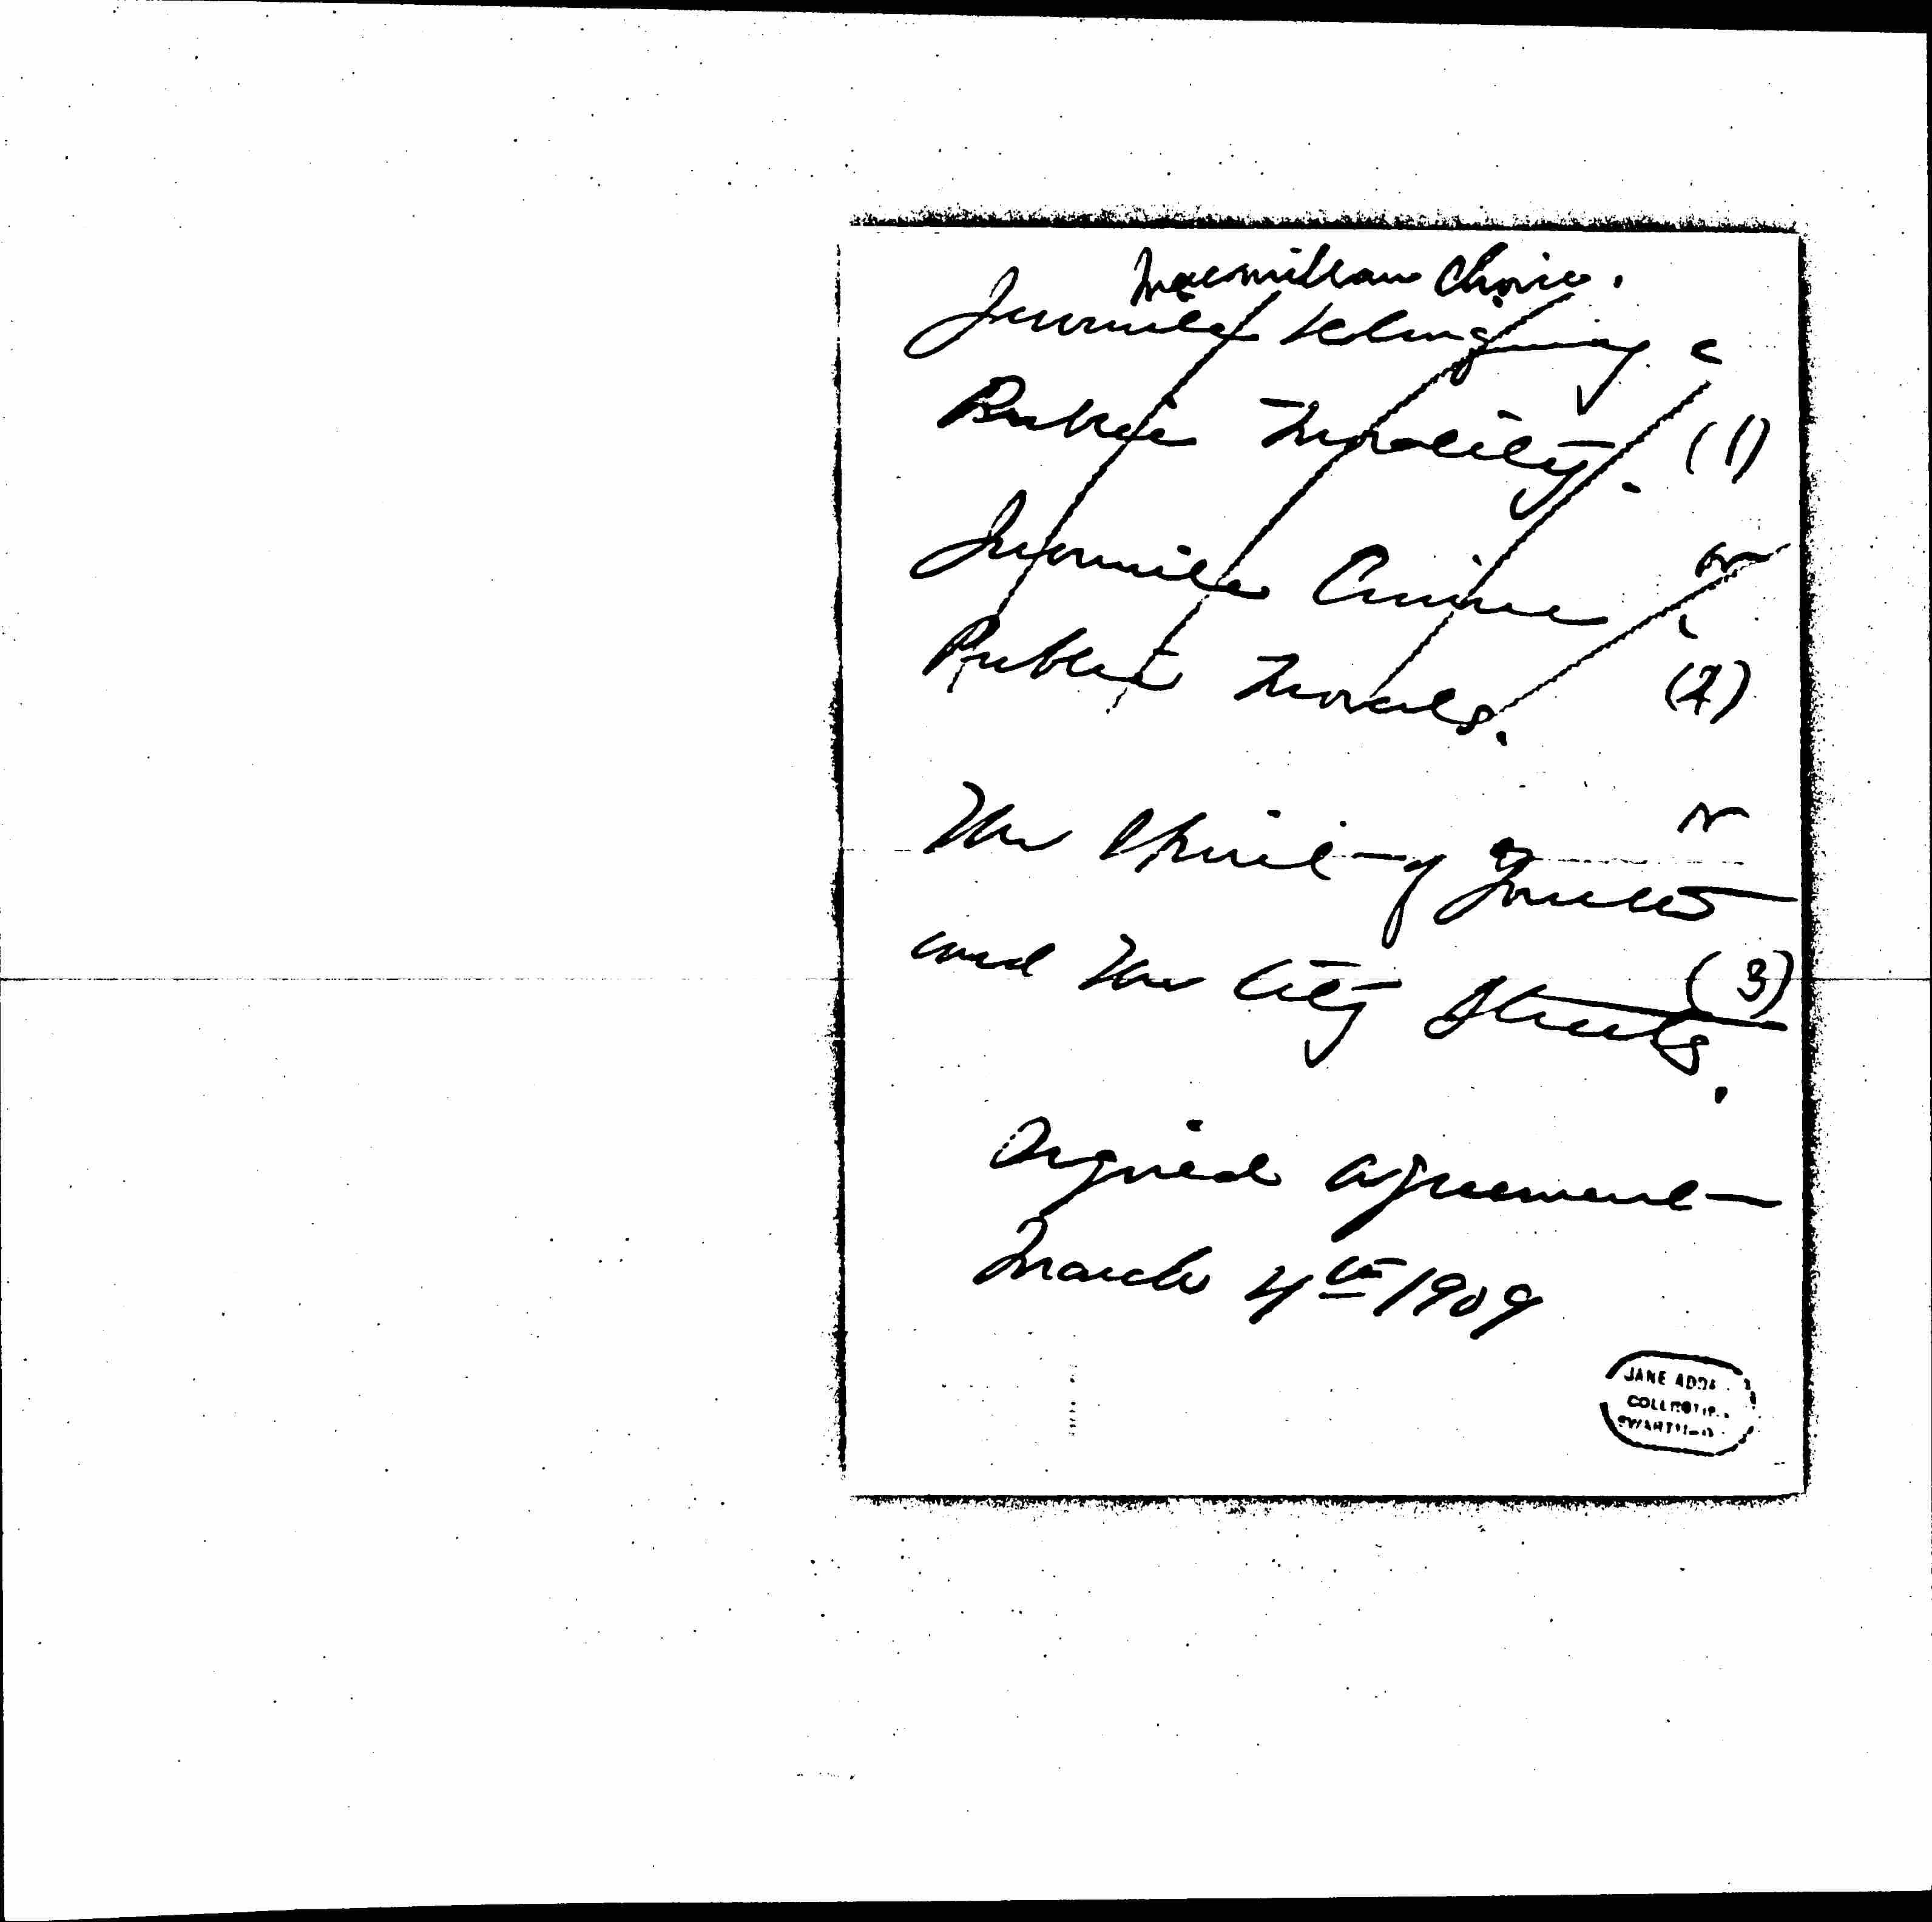 Macmillan Choice.
Juvenile Delinquency &
Public Morality. (1)
Juvenile Crime or
Public Morals. (2)
The Spirit of Youth
and the City Streets. (3)
Signed agreement
March 4th 1909
JANE ADDA
COLLECTION
SWARTHMO